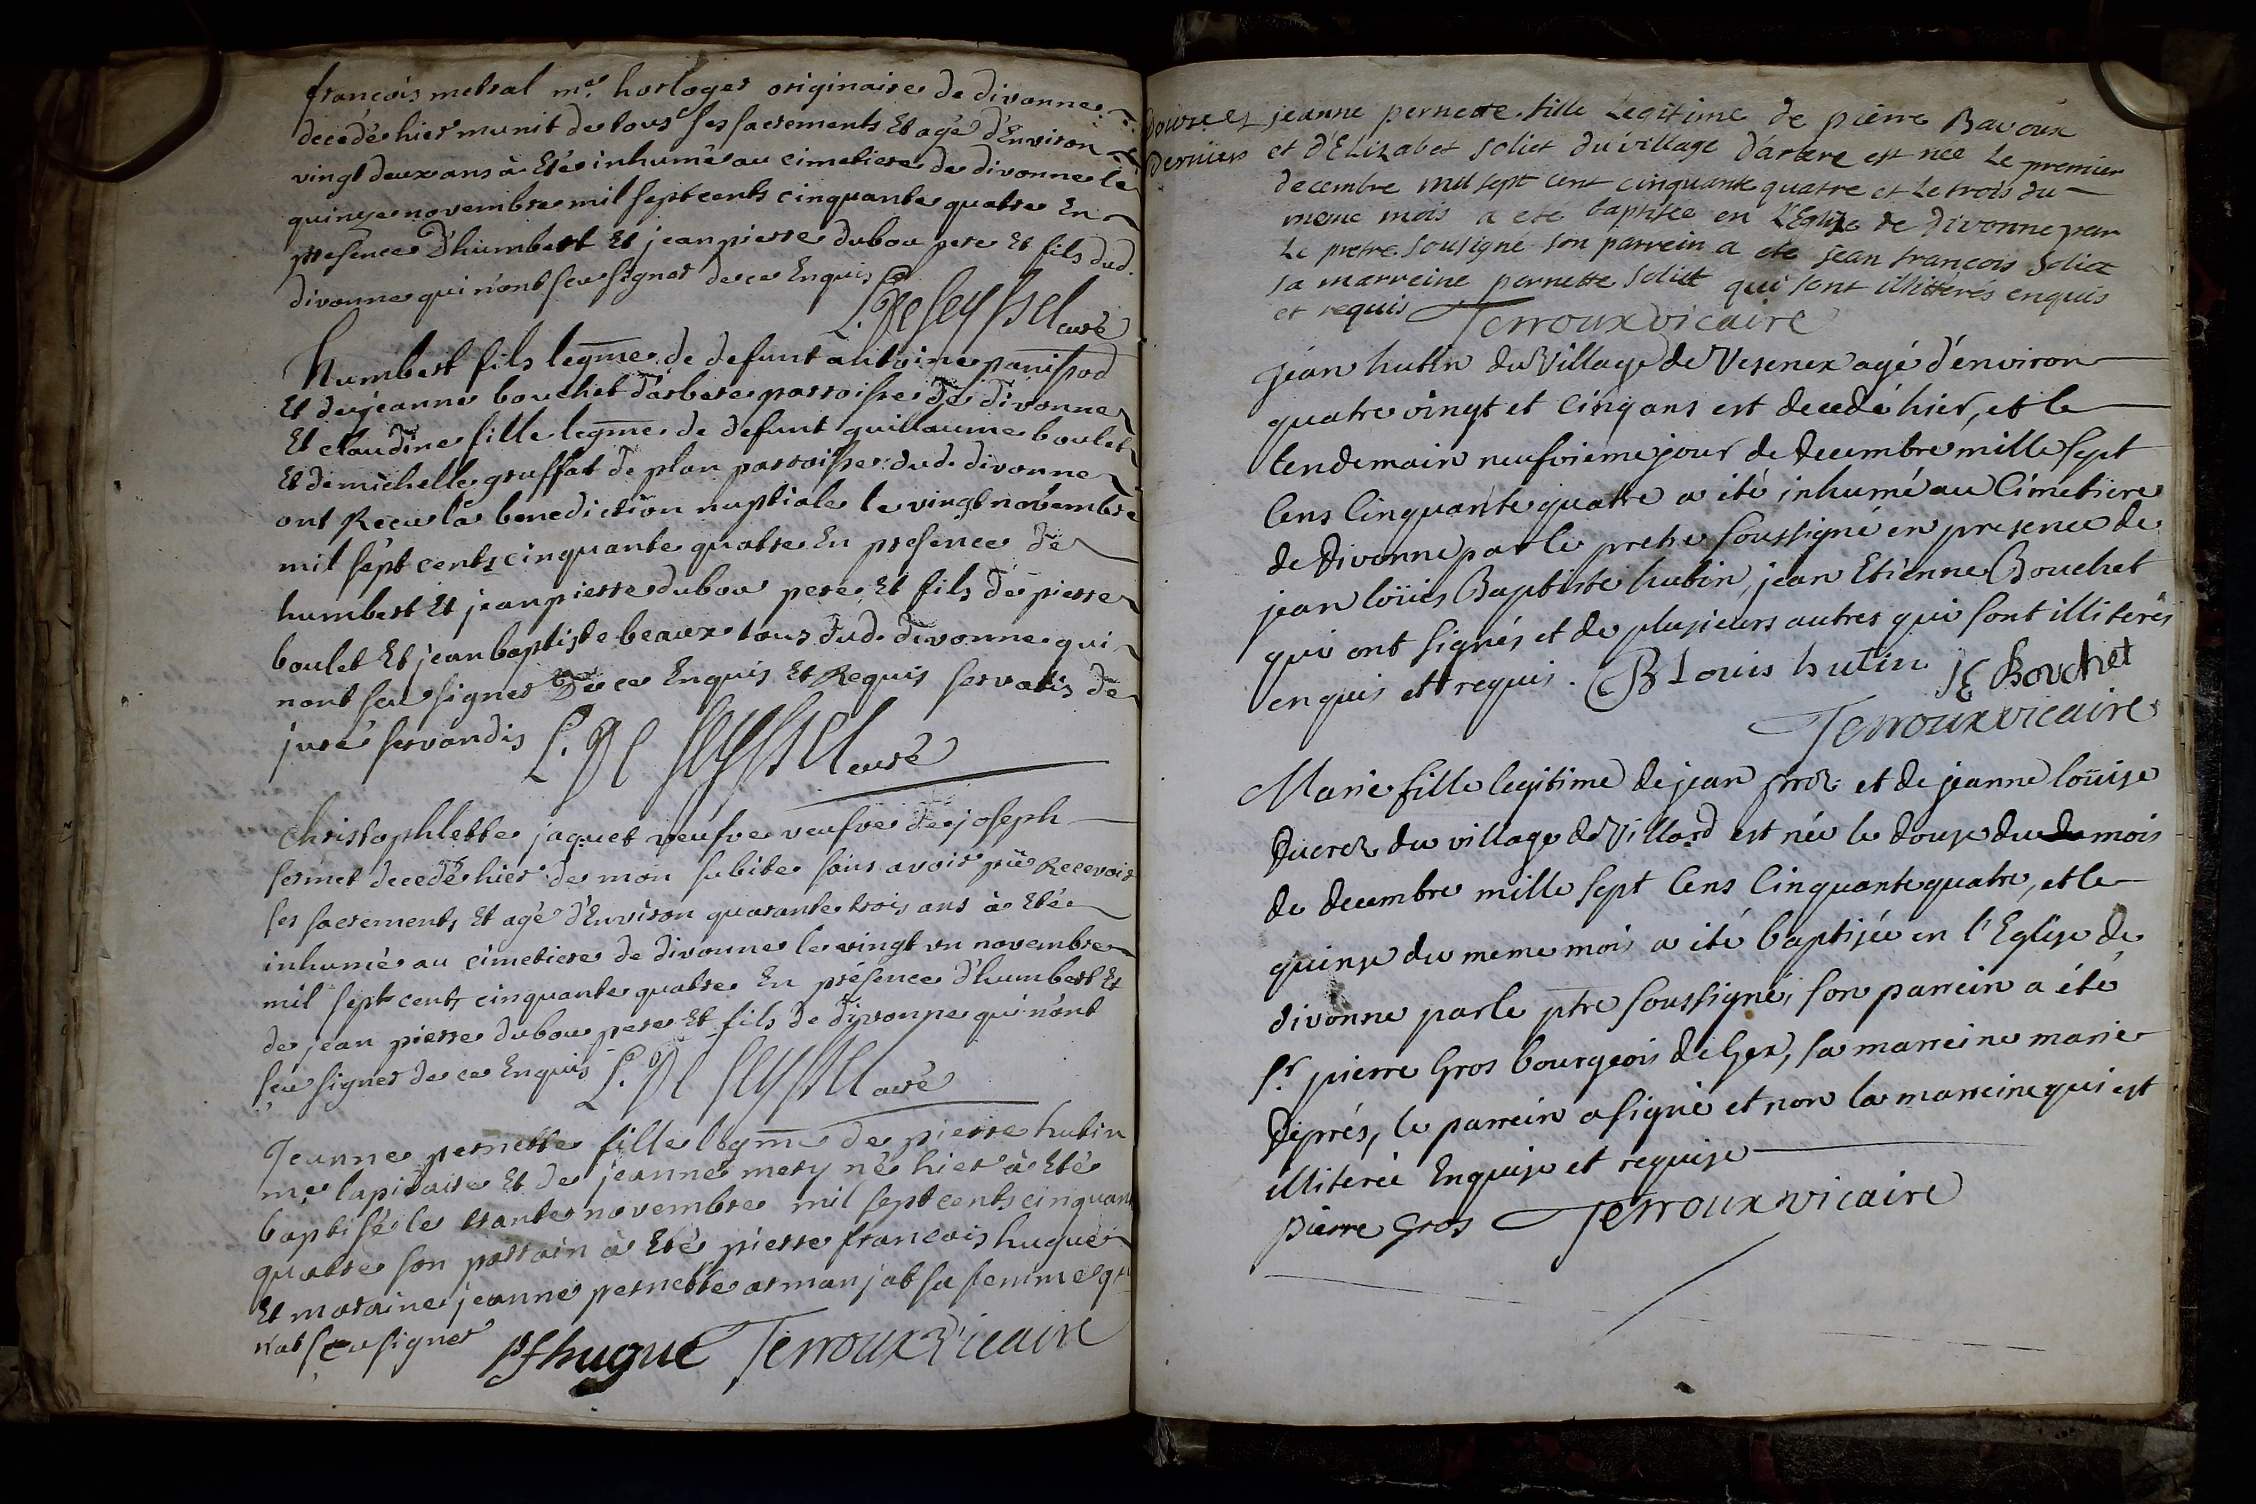 françois metral me. horloger originaire de divonne
decedé hier munit de tous ses sacrements Et agé d'Environ
vingt deux ans à Eté inhumé au cimetiere de divonne le
quinze novembre mil sept cents cinquante quatre En
presence d'humbert Et jean pierre dubou pere Et fils dud.
divonne qui n'ont sceu signer de ce Enquis
L. De Seyssel curé
humbert fils legme. de defunt antoine panissod
Et de jeanne bouchet d'arbere parroisse de divonne
Et claudine fille legme. de defunt guillaume boulet
Et de michelle gruffat de plan parroisse dud. divonne
ont Receu la benediction nuptiale le vingt novembre
mil sept cents cinquante quatre En presence de
humbert Et jean pierre dubou pere Et fils de pierre
boulet Et jean baptiste beaux tous dud. divonne qui
nont sceu signer de ce Enquis Et Requis servatis de
jure servandis L. De Seyssel curé
Christophlette jaquet veufve veufve de joseph
fermet decedé hier de mon subite sans avoir pu Recevoir
ses sacrements Et agé d'Environ quarante trois ans à Eté
inhumé au cimetiere de divonne le vingt un novembre
mil sept cents cinquante quatre En présence d'humbert Et
de jean pierre dubou pere Et fils de divonne qui n'ont
sceu signer de ce Enquis L. De Seyssel curé
Jeanne pernette fille legme de pierre hutin
me. lapidaire Et de jeanne mery né hier à Eté
baptisé le trante novembre mil sept cents cinquan
quatre son parrain à Eté pierre francois hugue
Et maraine jeanne pernette armanjat sa femme q
n'at sceu signer pf hugue Terroux Vicaire
Douze et
Dernier
jeanne pernette fille Legitime de pierre Bavoux
et d'Elizabet Soliet du village d'arbere est née Le premier
decembre mil sept cent cinquante quatre et Le trois du
meme mois a eté baptisée en L'Eglize de Divonne par
Le pretre sousigné son parrein a eté jean francois Soliet
sa marreine pernette Soliet qui sont illitterés enquis
et requis Terroux vicaire
jean hutin du Village de Vesenex agé d'environ
quatre vingt et Cinq ans est decedé hier, et le
lendemain neufvieme jour de decembre mille sept
Cens Cinquante quatre a été inhumé au Cimetiere
de Divonne par le pretre soussigné en presence de
jean loüis Baptiste hutin, jean Etienne Bouchet
qui ont signés et de plusieurs autres qui sont illiterés
enquis et requis. B Louis hutin JE Bouchet
Terroux vicaire
Marie fille legitime de jean gros et de jeanne loüise
Ducros du village de Villard est née le douze du du mois
de decembre mille sept Cens Cinquante quatre, et le
quinze du meme moi a été baptisée en l'Eglise de
divonne par le ptre soussigné, son parrein a été
sr. pierre Gros bourgeois de Gex, sa marreine marie
Deprés, le parrein a signé et non la marreine qui est
illiterée Enquise et requise
pierre Gros Terroux vicaire